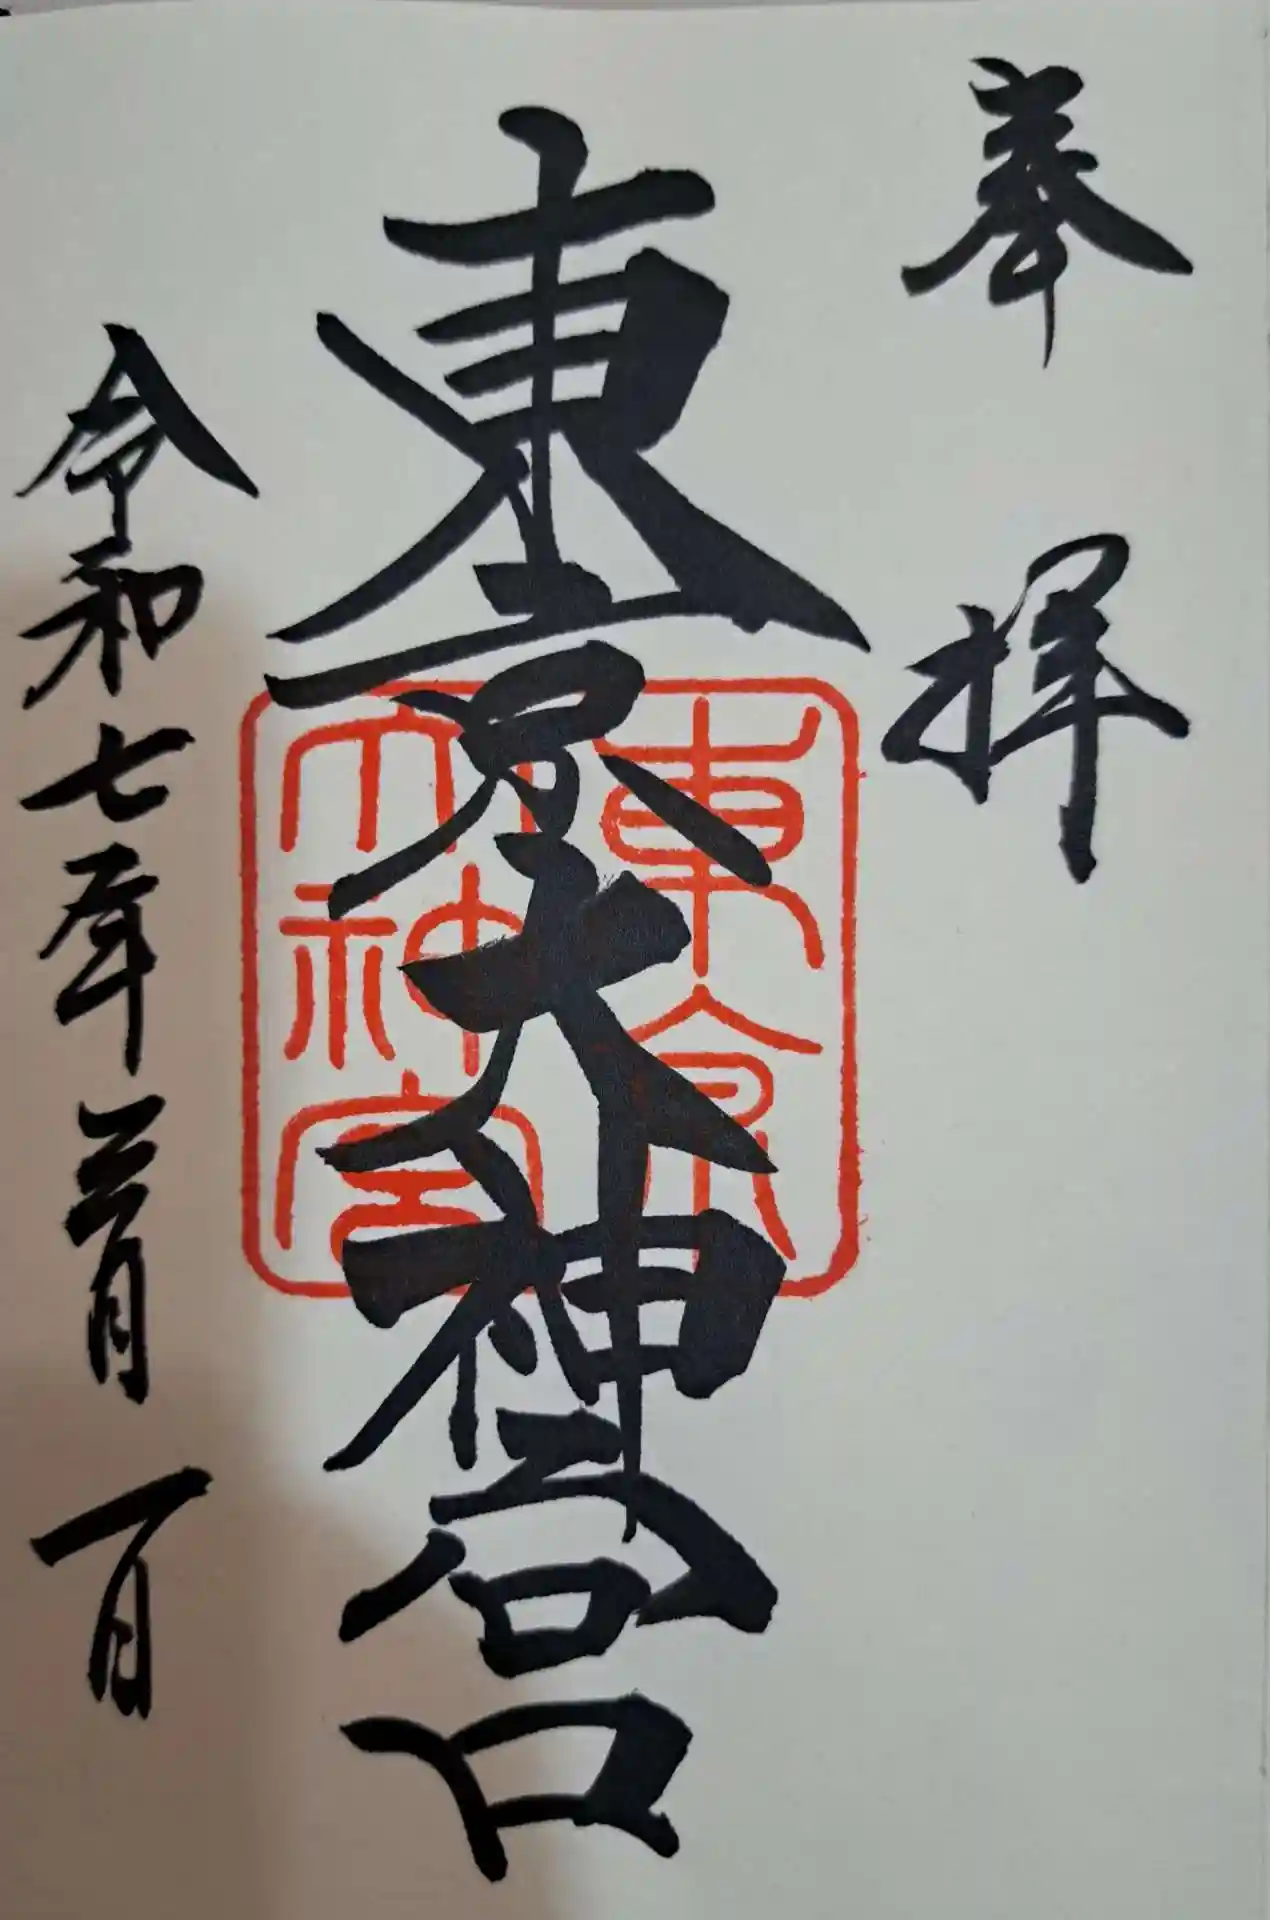 奉拝
東京大神宮
令和七年三月一日
東京
大神宮